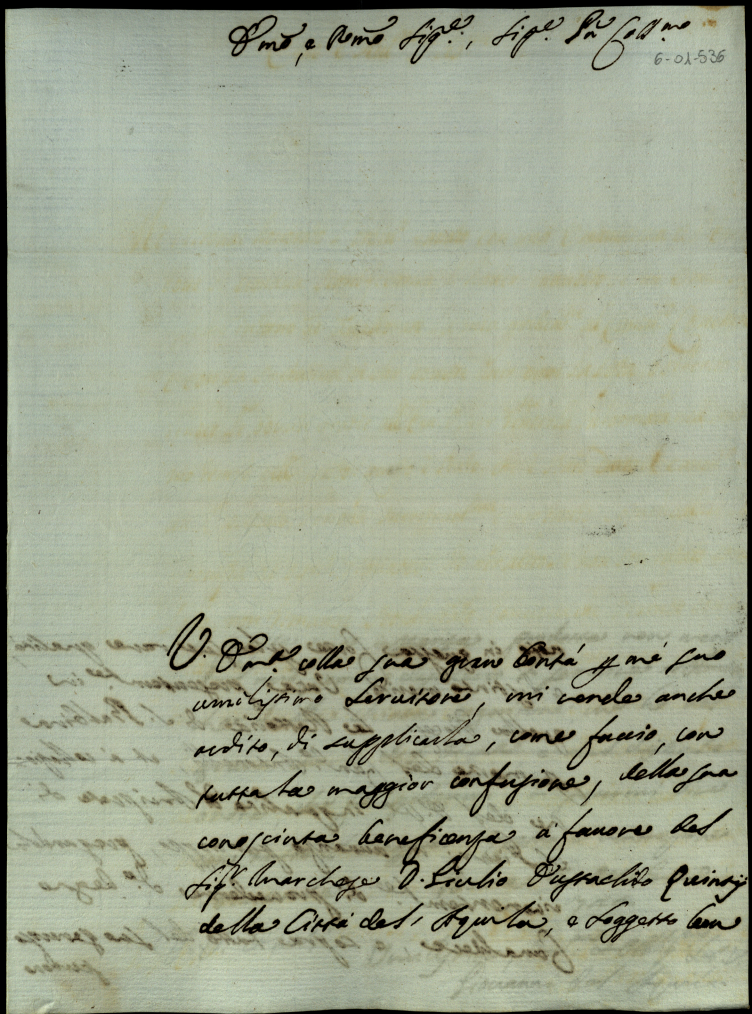 Emo, e Rmo Sig.re, Sig.re Pñe Coll.mo
6-01-536
V. Em.a colla sua gran bontá p mé suo
umilissimo Servitore, mi rende anche
ardito, di supplicarla, come faccio, con
tutta la maggior confusione, della sua
conosciuta beneficenza á favore del
Sig.r Marchese D. Giulio Eustachio Quinzj
della Cittá del' Aquila, e Soggetto ben